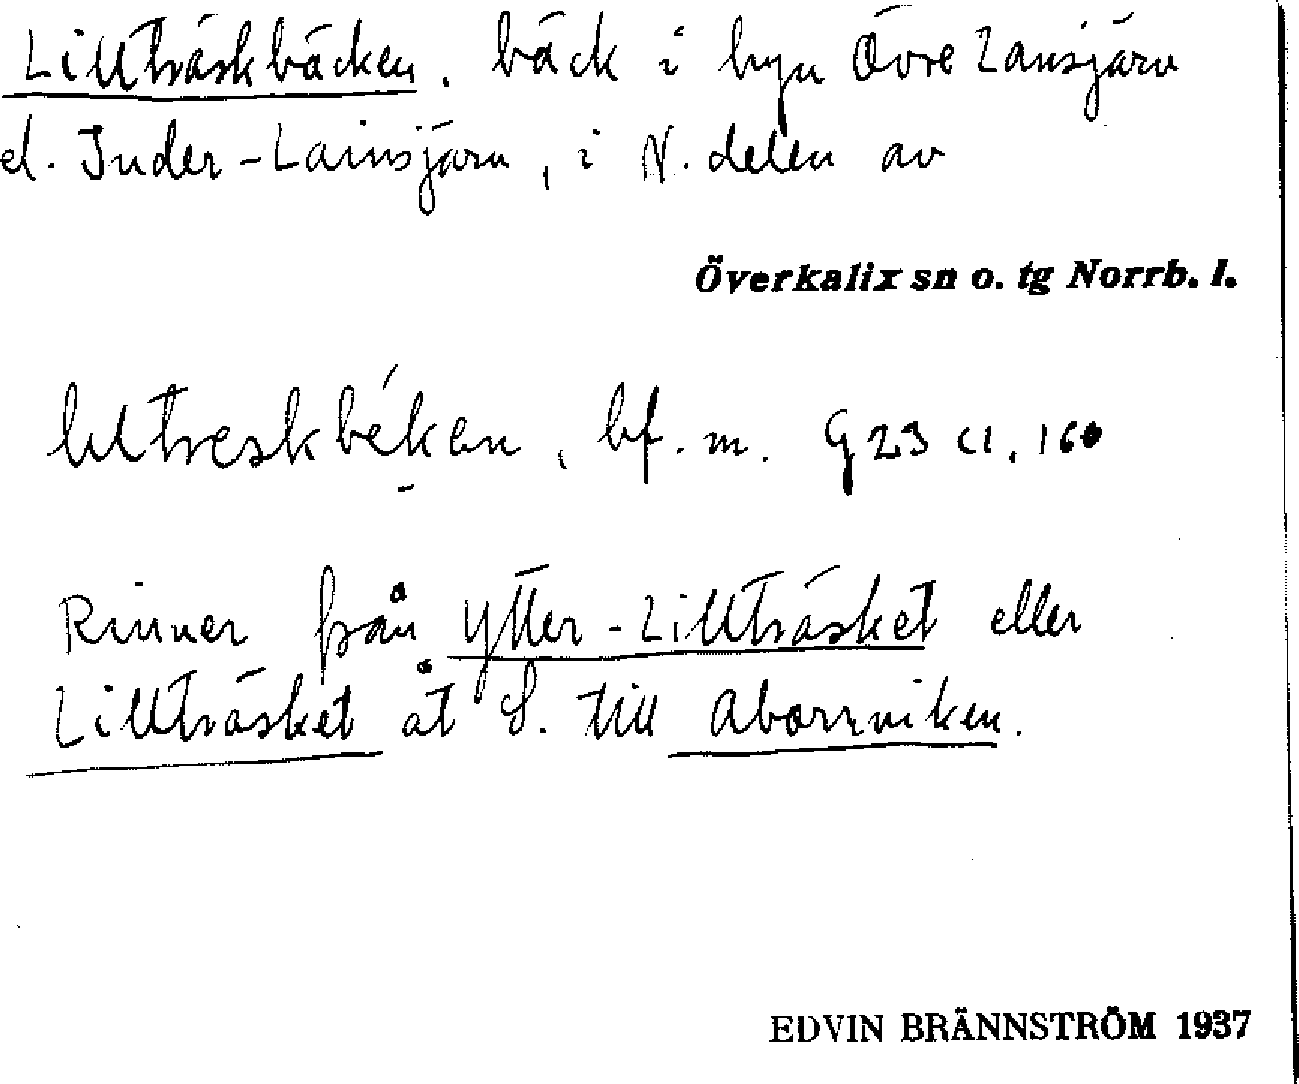 Lillträskbäcken. bäck i byn Övre Lansjärv
el. Inder-Lainsjärv, i N. delen av
Överkalix sn o. tg Norrb. l.
bf. m. G 23 c1. 160
Rinner från Ytter-Lillträsket eller
Lillträsket åt S. till Aborrviken.
EDVIN BRÄNNSTRÖM 1937